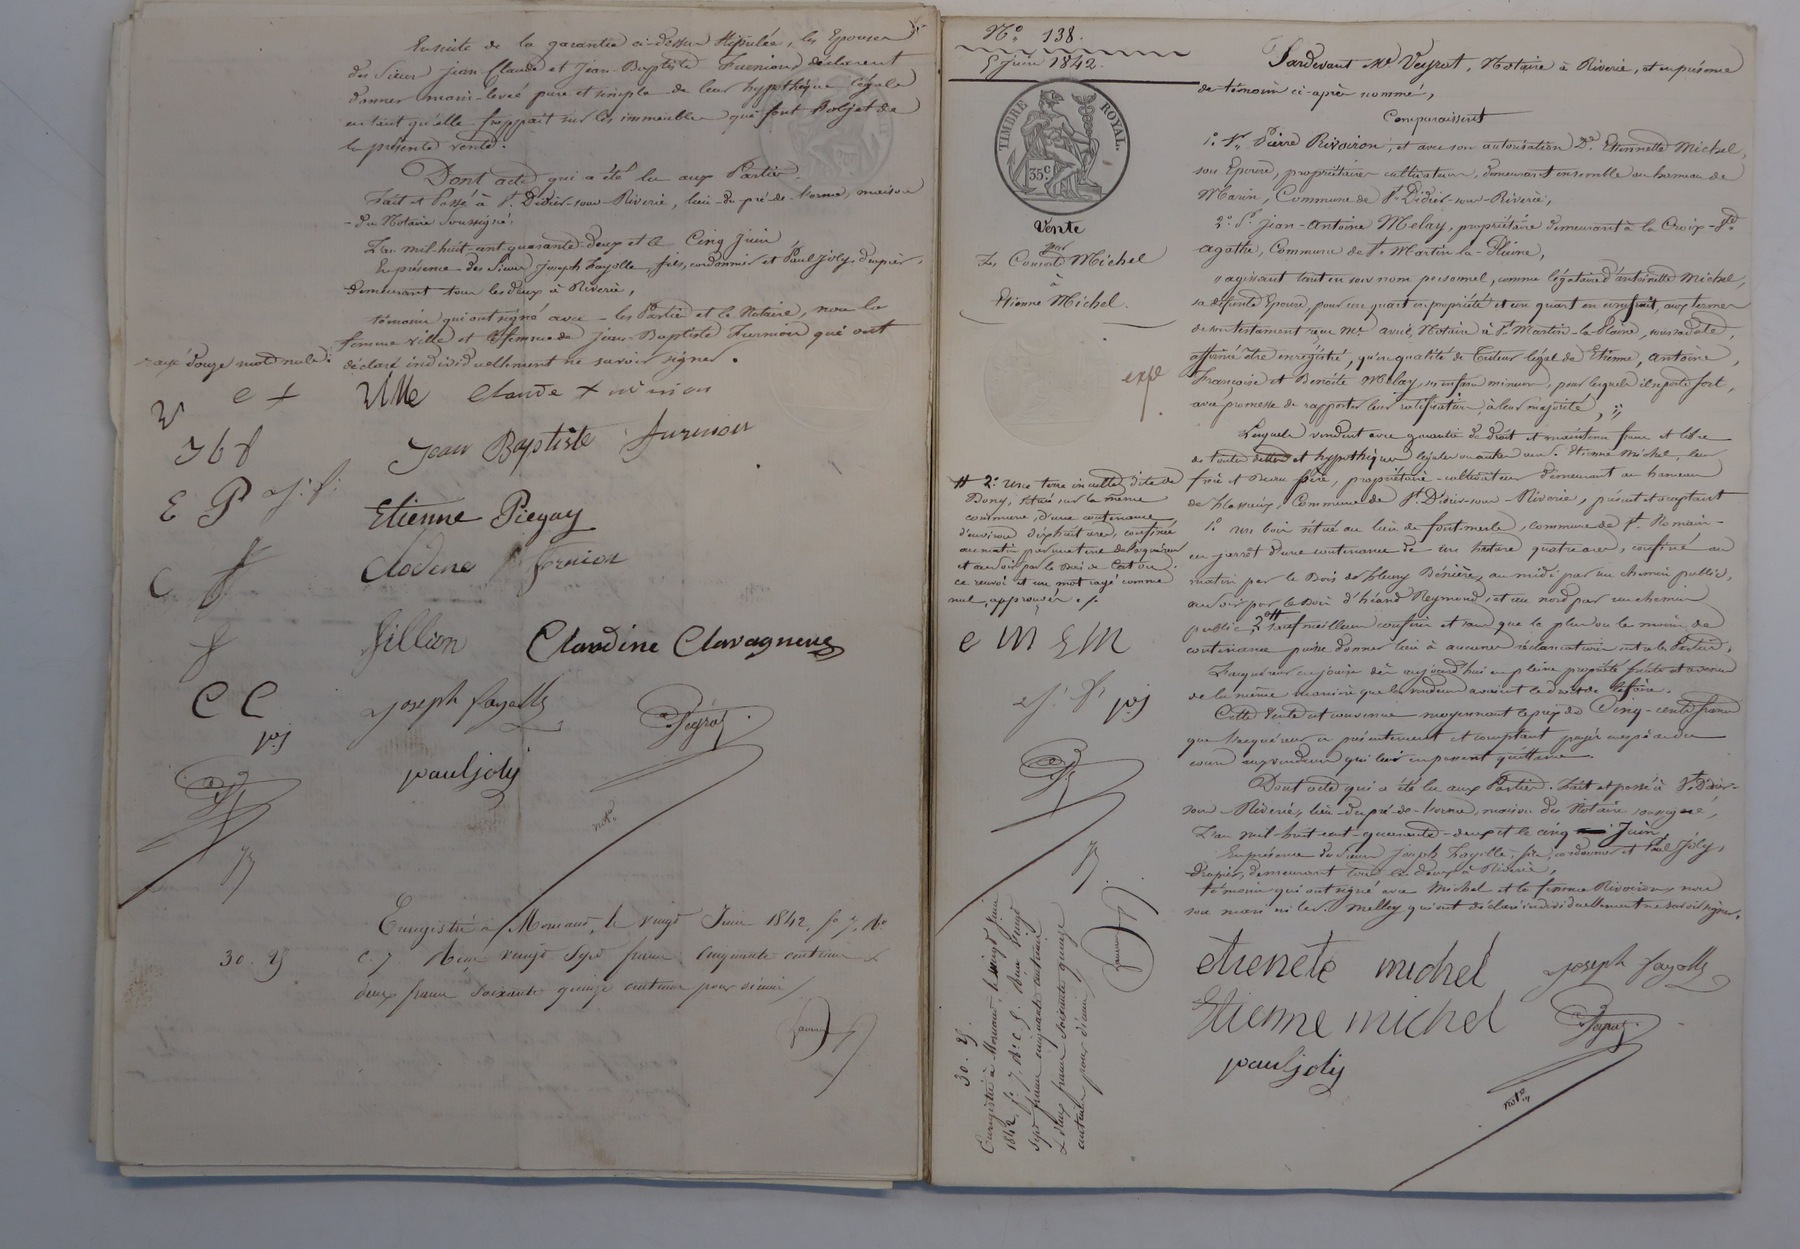 Ensuite de la garantie ci-dessus stipulée, les Epouses
des sieurs Jean-Claude et Jean-Baptiste Furnion déclarent
donner main-levée pure et simple de leur hypothèque légale
en tant qu'elle frappait sur les immeubles qui font l'objet de
la présente vente.
Dont acte qui a été lu aux Parties.
Fait et Passé à St. Didier-sous-Riverie, lieu-du-pré-de-
-du Notaire soussigné,
L'an mil-huit-cent-quarante-deux et le Cinq Juin
En présence des Sieurs Joseph Fayolle, fils, cordonnier et Paul Joly, drapier,
demeurant tous les deux à Riverie,
témoins qui ont signé avec les Parties et le Notaire, non la
femme Ville et la femme de Jean-Baptiste Furnion qui ont
rayé douze mots nuls.
déclaré individuellement ne savoir signer.
Ville Claude furnion
Jean Baptiste furnion
E P j. f.
Etienne Piegay
Clodine furnion
fillion Claudine Clavagneux
C C
Joseph fayolle Peyrot
pj
paul joly
notre
Enregistré à Mornant, le vingt Juin 1842, fo 7, Ro
30. 25
c. 7. Reçu vingt sept francs cinquante centimes &
deux francs soixante quinze centimes pour décime
No. 138.
5 Juin 1842.
TIMBRE ROYAL.
35 c
Vente
par
Les Consorts Michel
à
Etienne Michel.
expé
Pardevant Me Peyrot, Notaire à Riverie, et en présence
de témoins ci-après nommés,
Comparaissent
1o. Sr. Pierre Rivoiron, et avec son autorisation De. Etiennette Michel,
son Epouse, propriétaires cultivateurs, demeurant ensemble au hameau de
Marin, Commune de St. Didier-sous-Riverie,
2o. Sr. Jean-Antoine Melay, propriétaire demeurant à la Croix-Ste
Agathe, Commune de St. Martin-la-Plaine,
agissant tant en son nom personnel, comme légataire d'antoinette Michel,
sa défunte Epouse, pour un quart en propriété et un quart en usufruit, aux termes
de son testament reçu Me. Notaire à St. Martin-la-Plaine, sous sa date,
affirmé être enregistré, qu'en qualité de tuteur légal de Etienne, Antoine,
Françoise et Benoite Melay, ses enfans mineurs, pour lesquels il se porte fort,
avec promesse de rapporter leur ratification à leur majorité,
Lesquels vendent avec garantie de droit et maintenu franc et libre
de toutes dettes et hypothèques légales ou autres au sr. Etienne Michel, leur
frère et beau frère, propriétaire-cultivateur demeurant au hameau
Commune de St. Didier-sous-Riverie, présent et acceptant
1o. un bois situé au lieu de font-merle, commune de St. Romain-
en-jarrêt d'une contenance de un hectare quatre ares, confiné au
matin par le Bois de fleury Bénière, au midi par un chemin public,
au soir par le Bois Reymond, et au nord par un chemin
public; 2o # sauf meilleurs confins et sans que le plus ou le moins de
contenance puisse donner lieu à aucune réclamation entre les Parties,
L'acquéreur en jouira dès aujourd'hui en pleine propriété fruits et revenus
de la même manière que les vendeurs avaient le droit de le faire.
Cette vente est convenue moyennant le prix de Cinq-cents francs
que l'acquéreur a présentement et comptant payés en espèces du
cours aux vendeurs qui lui en passent quittance.
Dont acte qui a été lu aux Parties. Fait et passé à St. Didier-
sous-Riverie, lieu-du-pré-de- maison du Notaire soussigné,
L'an mil-huit-cent-quarante-deux et le cinq Juin,
En présence des Sieurs Joseph Fayolle, fils, cordonnier et Paul Joly,
drapier, demeurant tous les deux à Riverie,
témoins qui ont signé avec Michel et la femme Rivoiron, non
son mari ni le sr. Melley qui ont déclaré individuellement ne savoir signer.
# 2o. Une terre inculte, dite de
Bony, située sur la même
commune, d'une contenance
d'environ dix-huit ares, confinée
au matin par une terre de l'acquéreur
et au soir par le bois de
ce renvoi et un mot rayé comme
nul, approuvés.
e m E m
j. f. pj
etienete michel Joseph fayolle
Etienne michel Peyrot
paul joly
notre
30. 25.
Enregistré à Mornant, le vingt Juin
1842, fo. 7. Ro. c. 8. Reçu vingt
sept francs cinquante centimes
& deux francs soixante quinze
centimes pour décime